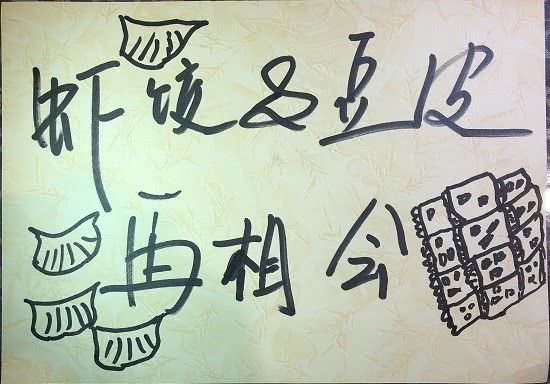 虾饺&豆皮
再相会